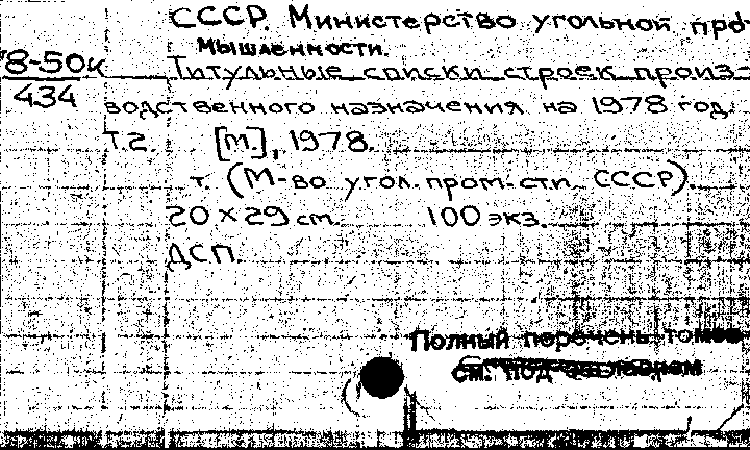 СССР. Министерство угольной про
мышленности.
78-50к
434
Титульные списки строек произ-
водственного назначения на 1978 год.
Т.2. [М], 1978.
т. (М-во угол. пром-сти СССР).
20 х 29 см. 100 экз.
ДСП.
Полный перечень томов
см. под заглавием